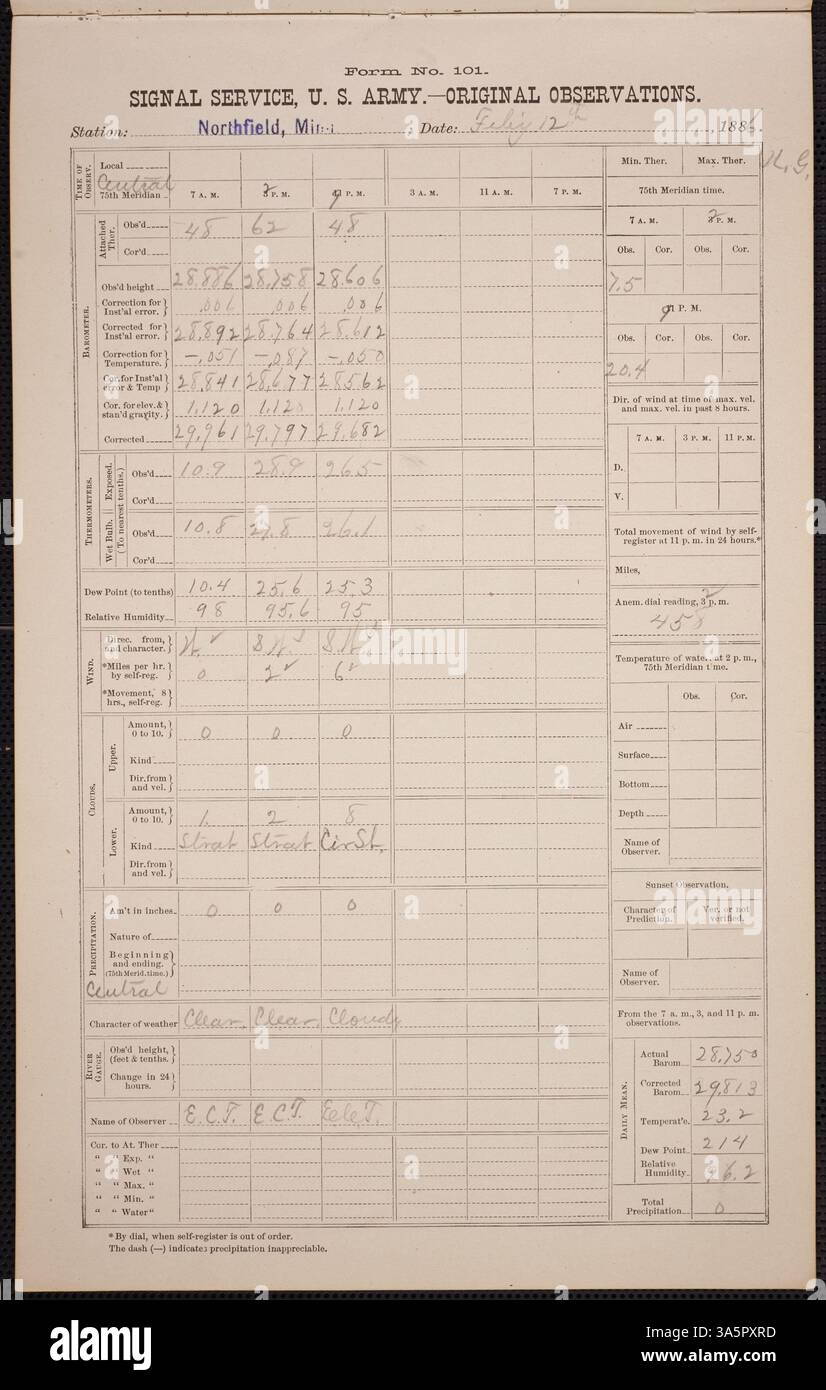 Form No. 101.
SIGNAL SERVICE, U. S. ARMY.—ORIGINAL OBSERVATIONS.
Station: Northfield, Minn Date: 12th, 188
TIME OF OBSERV.
Local
Central
75th Meridian
7 A. M. 2 3 P. M. 9 P. M. 3 A. M. 11 A. M. 7 P. M.
BAROMETER.
Attached Ther.
Obs'd 48 62 48
Cor'd
Obs'd height 28.886 28.758 28.606
Correction for Inst'al error. .006 .006 .006
Corrected for Inst'al error. 28.892 28.764 28.612
Correction for Temperature. —.051 —.087 —.050
Cor. for Inst'al error & Temp 28.841 28.677 28.562
Cor. for elev. & stan'd gravity. 1.120 1.120 1.120
Corrected 29.961 29.797 29.682
THERMOMETERS. (To nearest tenths.)
Exposed.
Obs'd 10.9 28.9 26.5
Cor'd
Wet Bulb.
Obs'd 10.8 27.8 26.1
Cor'd
Dew Point (to tenths) 10.4 25.6 25.3
Relative Humidity 98 95.6 95
WIND.
Direc. from, and character.
*Miles per hr. by self-reg. 0 2 6
*Movement, 8 hrs., self-reg.
CLOUDS.
Upper.
Amount, 0 to 10. 0 0 0
Kind
Dir. from and vel.
Lower.
Amount, 0 to 10. 1. 2 8
Kind Strat Strat Cir St.
Dir. from and vel.
PRECIPITATION.
Am't in inches 0 0 0
Nature of
Beginning and ending. (75th Merid. time.)
Central
Character of weather Clear. Clear. Cloudy
RIVER GAUGE.
Obs'd height, (feet & tenths.)
Change in 24 hours.
Name of Observer E.C.T. E.C.T.
Cor. to At. Ther
" " Exp. "
" " Wet "
" " Max. "
" " Min. "
" " Water"
* By dial, when self-register is out of order.
The dash (—) indicates precipitation inappreciable.
Min. Ther. Max. Ther.
75th Meridian time.
7 A. M. 2 3 P. M.
Obs. Cor. Obs. Cor.
7.5
9 P. M.
Obs. Cor. Obs. Cor.
20.4
Dir. of wind at time of max. vel. and max. vel. in past 8 hours.
7 A. M. 3 P. M. 11 P. M.
D.
V.
Total movement of wind by self-register at 11 p. m. in 24 hours.*
Miles,
Anem. dial reading, 3 p. m.
458
Temperature of water at 2 p. m., 75th Meridian time.
Obs. Cor.
Air
Surface
Bottom
Depth
Name of Observer.
Sunset Observation.
Character of Prediction. Ver. or not verified.
Name of Observer.
From the 7 a. m., 3, and 11 p. m. observations.
DAILY MEAN.
Actual Barom. 28.750
Corrected Barom. 29.813
Temperat'e. 23.2
Dew Point 214
Relative Humidity 96.2
Total Precipitation 0
alamy
Image ID: 3A5PXRD
www.alamy.com